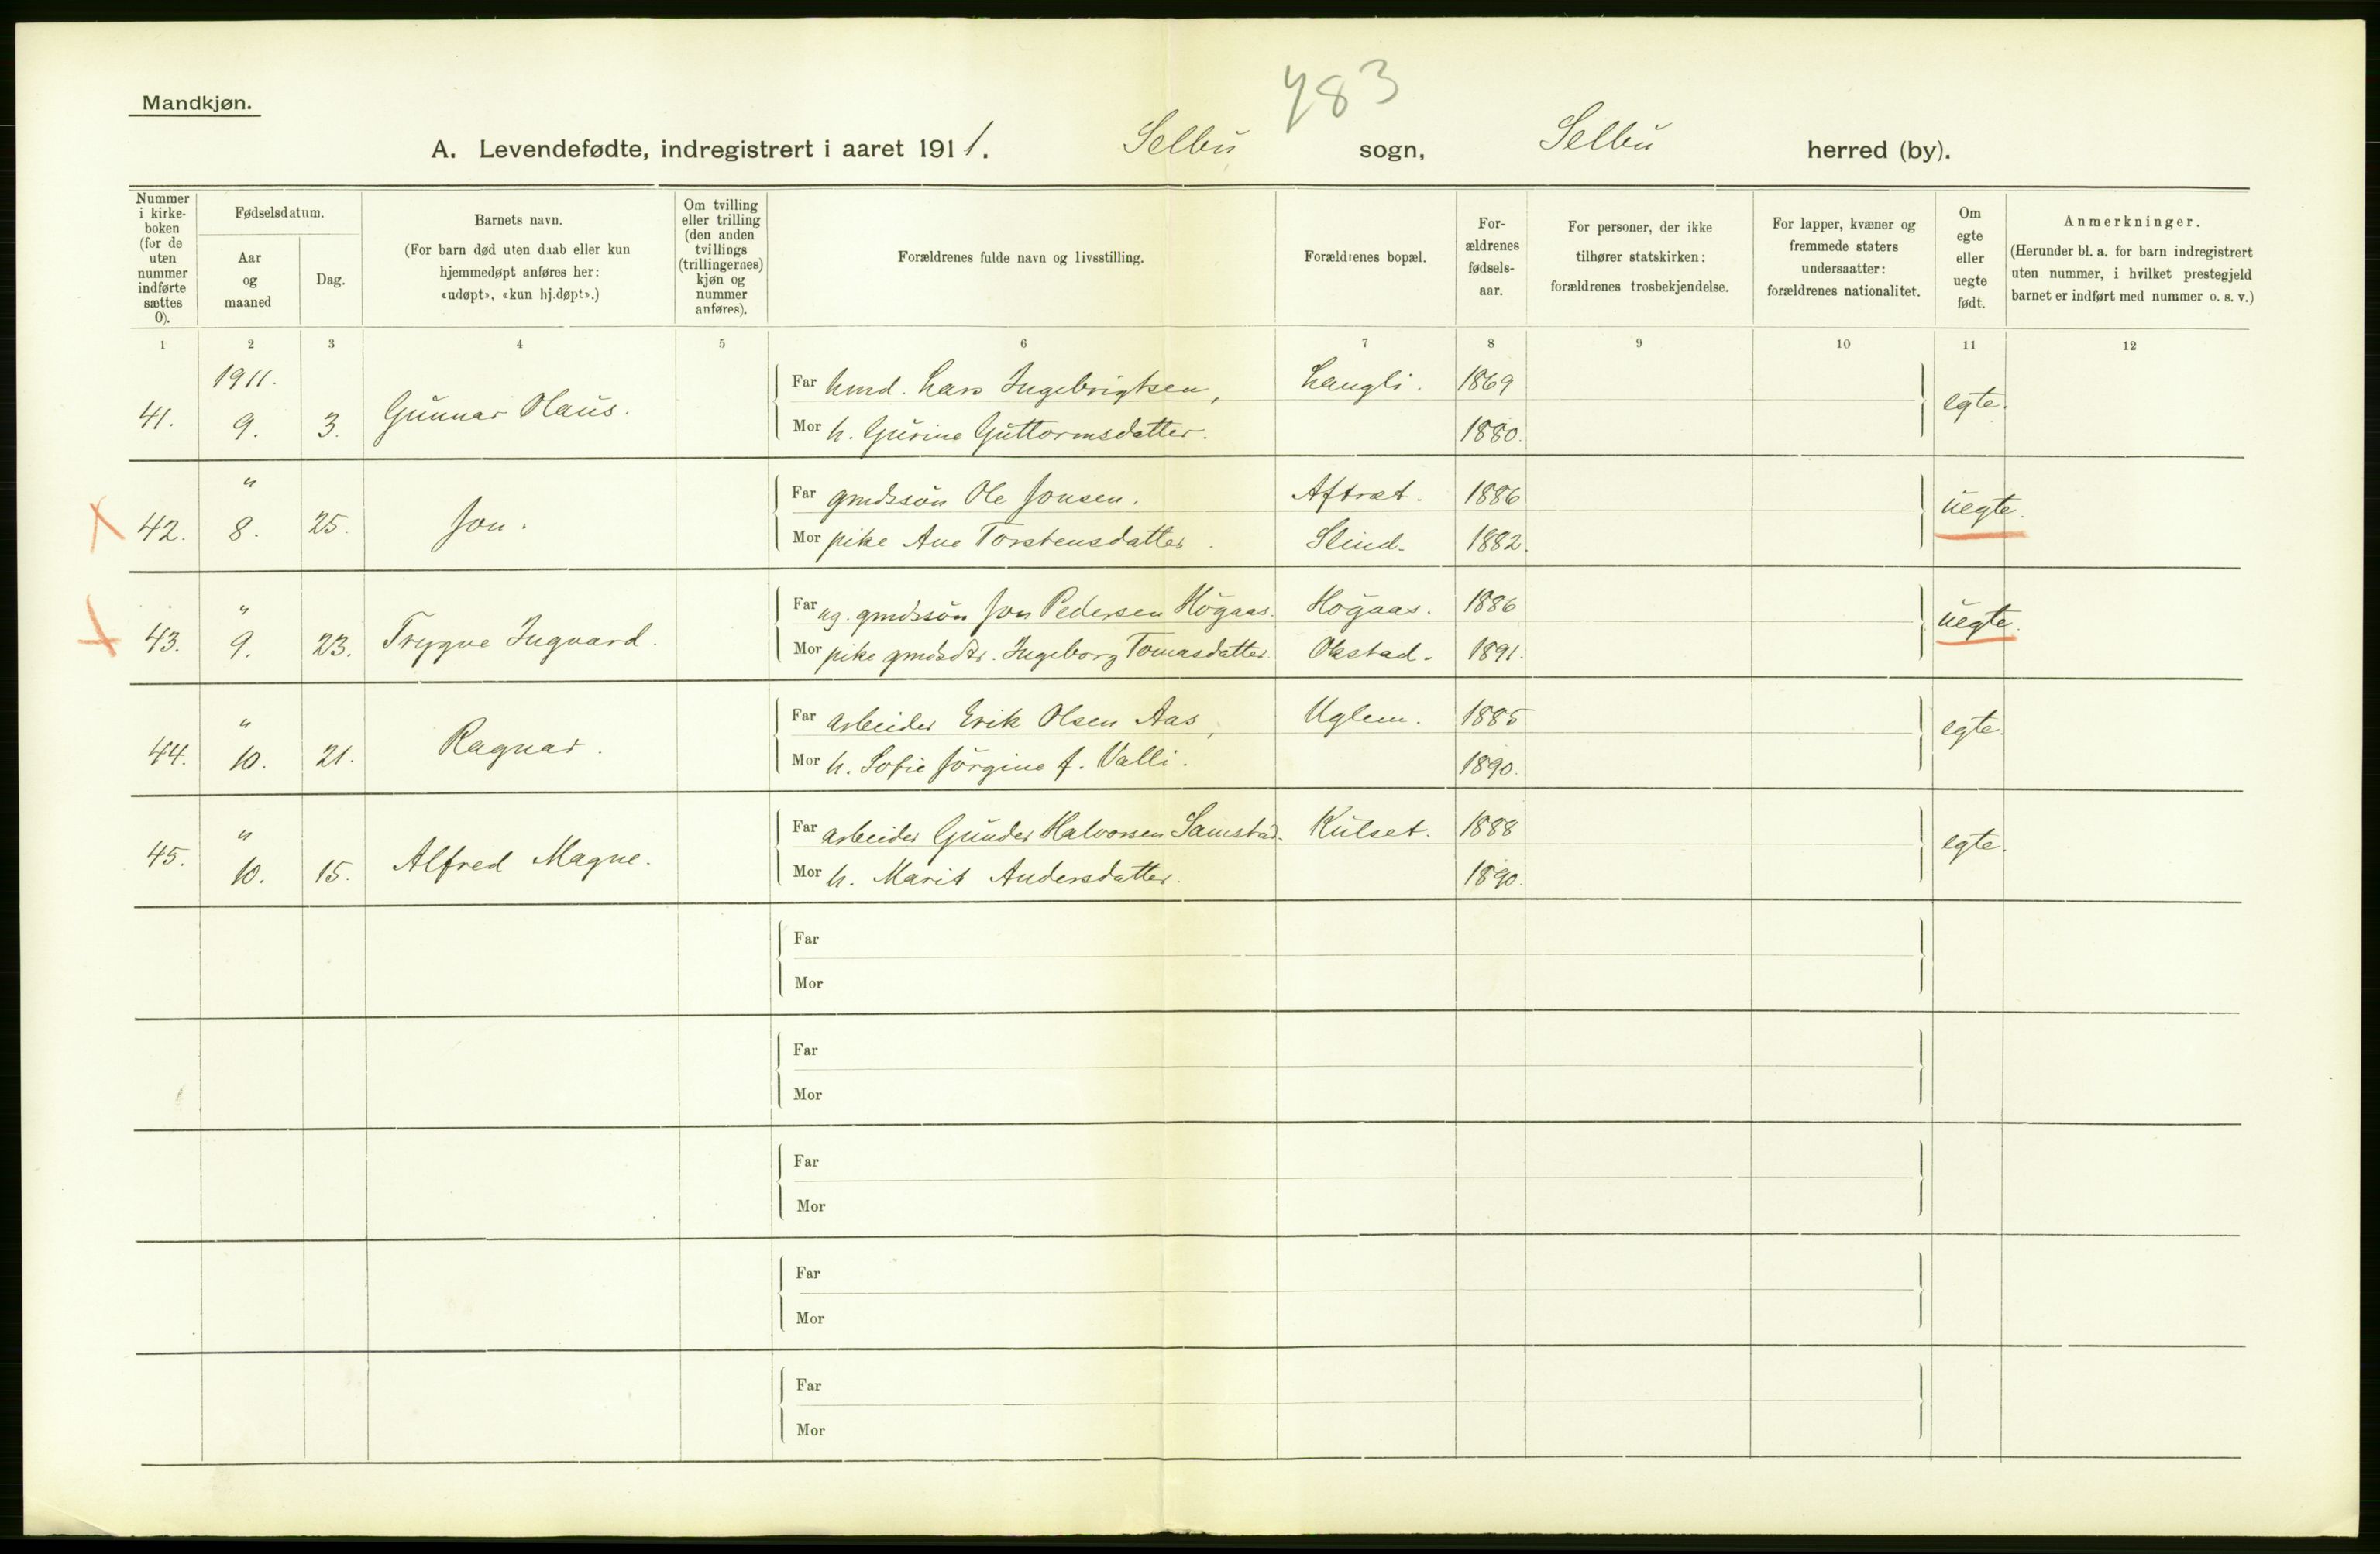 483
Mandkjøn.
A. Levendefødte, indregistrert i aaret 1911. Selbu sogn, Selbu herred (by).
Nummer i kirke-boken (for de uten nummer indførte sættes 0).
Fødselsdatum.
Aar og maaned
Dag.
Barnets navn.
(For barn død uten daab eller kun hjemmedøpt anføres her: «udøpt», «kun hj.døpt».)
Om tvilling eller trilling (den anden tvillings (trillingernes) kjøn og nummer anføres).
Forældrenes fulde navn og livsstilling.
Forældrenes bopæl.
For-ældrenes fødsels-aar.
For personer, der ikke tilhører statskirken: forældrenes trosbekjendelse.
For lapper, kvæner og fremmede staters undersaatter: forældrenes nationalitet.
Om egte eller uegte født.
Anmerkninger.
(Herunder bl. a. for barn indregistrert uten nummer, i hvilket prestegjeld barnet er indført med nummer o. s. v.)
1 2 3 4 5 6 7 8 9 10 11 12
1911.
41. 9. 3. Gunnar Olaus.
Far hmd. Lars Ingebrigtsen, Langli. 1869
Mor h. Gurine Guttormsdatter. 1880.
egte.
"
42. 8. 25. Jon.
Far gmdssøn Ole Jonsen. Aftret. 1886
Mor pike Ane Torstensdatter. Slind. 1882.
uegte.
"
43. 9. 23. Trygve Ingvard.
Far ug. gmdssøn Jon Pedersen Högaas. Högaas. 1886
Mor pike gmdsdtr. Ingeborg Tomasdatter. Okstad. 1891.
uegte.
"
44. 10. 21. Ragnar.
Far arbeider Erik Olsen Aas, Uglem. 1885
Mor h. Sofie Jörgine f. Valli. 1890.
egte.
"
45. 10. 15. Alfred Magne.
Far arbeider Gunder Halvorsen Samstad. Kulset. 1888
Mor h. Marit Andersdatter. 1890.
egte.
Far
Mor
Far
Mor
Far
Mor
Far
Mor
Far
Mor